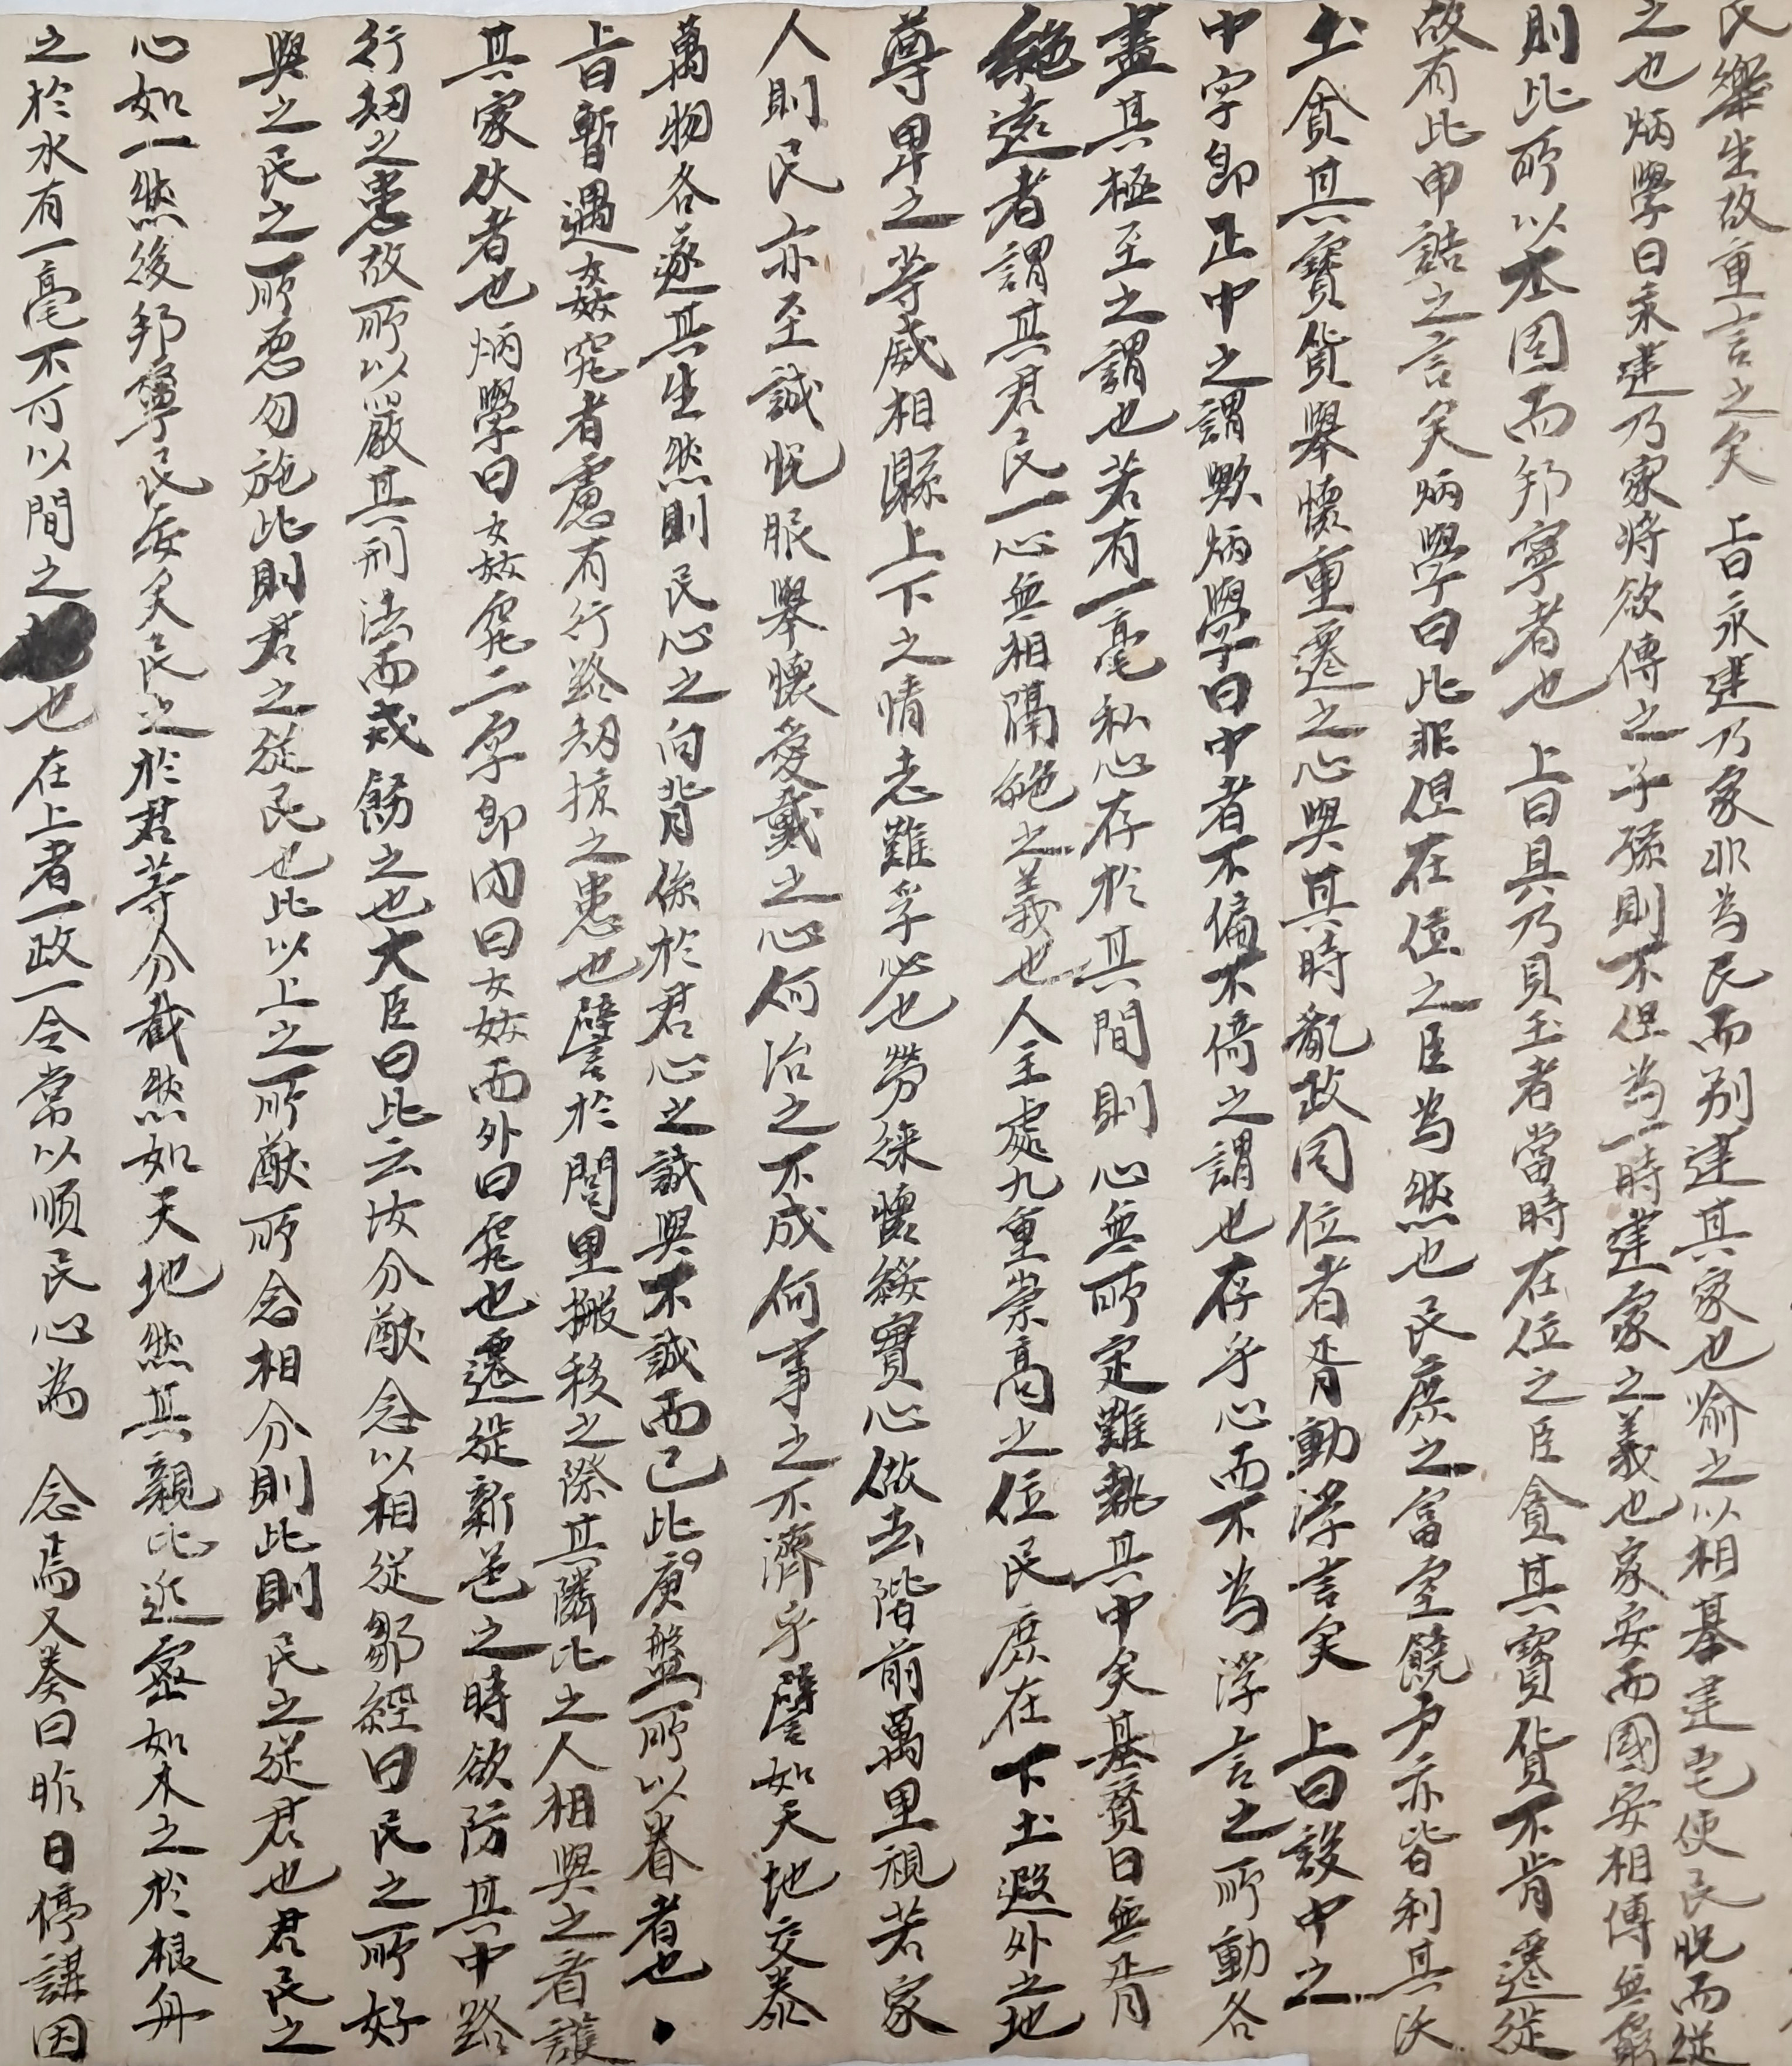 民樂生故重言之矣　上曰永建乃家非為民而別建其家也喩之以相基建宅使民悅而從
之也炳學曰永建乃家將欲傳之子孫則不但為一時建家之義也家安而國安相傳無窮
則此所以丕固而邦寧者也　上曰具乃貝玉者當時在位之臣貪其寶貨不肯遷徙
故有此申誥之言矣炳學曰比非但在位之臣為然也民庶之富室饒戶亦皆利其沃
土貪其寶貨擧懷重遷之心與其時亂政同位者胥動浮言矣　上曰設中之
中字卽正中之謂歟炳學曰中者不偏不倚之謂也存乎心而不為浮言之所動各
盡其極至之謂也若有一毫私心存於其間則心無所定難執其中矣基贊曰無胥
絶遠者謂其君民一心無相隔絶之義也人主處九重崇高之位民庶在下土遐外之地
尊卑之等威相縣上下之情志難孚必也勞徠懷綏實心做去階前萬里視若家
人則民亦至誠悅服擧懷愛戴之心何治之不成何事之不濟乎譬如天地交泰
萬物各遂其生然則民心之向背係於君心之誠與不誠而已此庚盤所以眷眷者也
上曰暫遇姦宄者慮有行路刼掠之患也譬於閭里搬移之際其隣比之人相與之看護
其家伙者也炳學曰女姦宄二字卽內曰女姦而外曰宄也遷徙新邑之時欲防其中路
行刼之患故所以嚴其刑法而戒飭之也大臣曰此云汝分猷念以相從鄒經曰民之所好
與之民之所惡勿施此則君之從民也比以上之所猷所念相分則此則民之從君也君民之
心如一然後邦寧民安矣民之於君等分截然如天地然其親比近密如木之於根舟
之於水有一毫不可以間之也在上者一政一令常以順民心為　念焉又奏曰昨日停講因